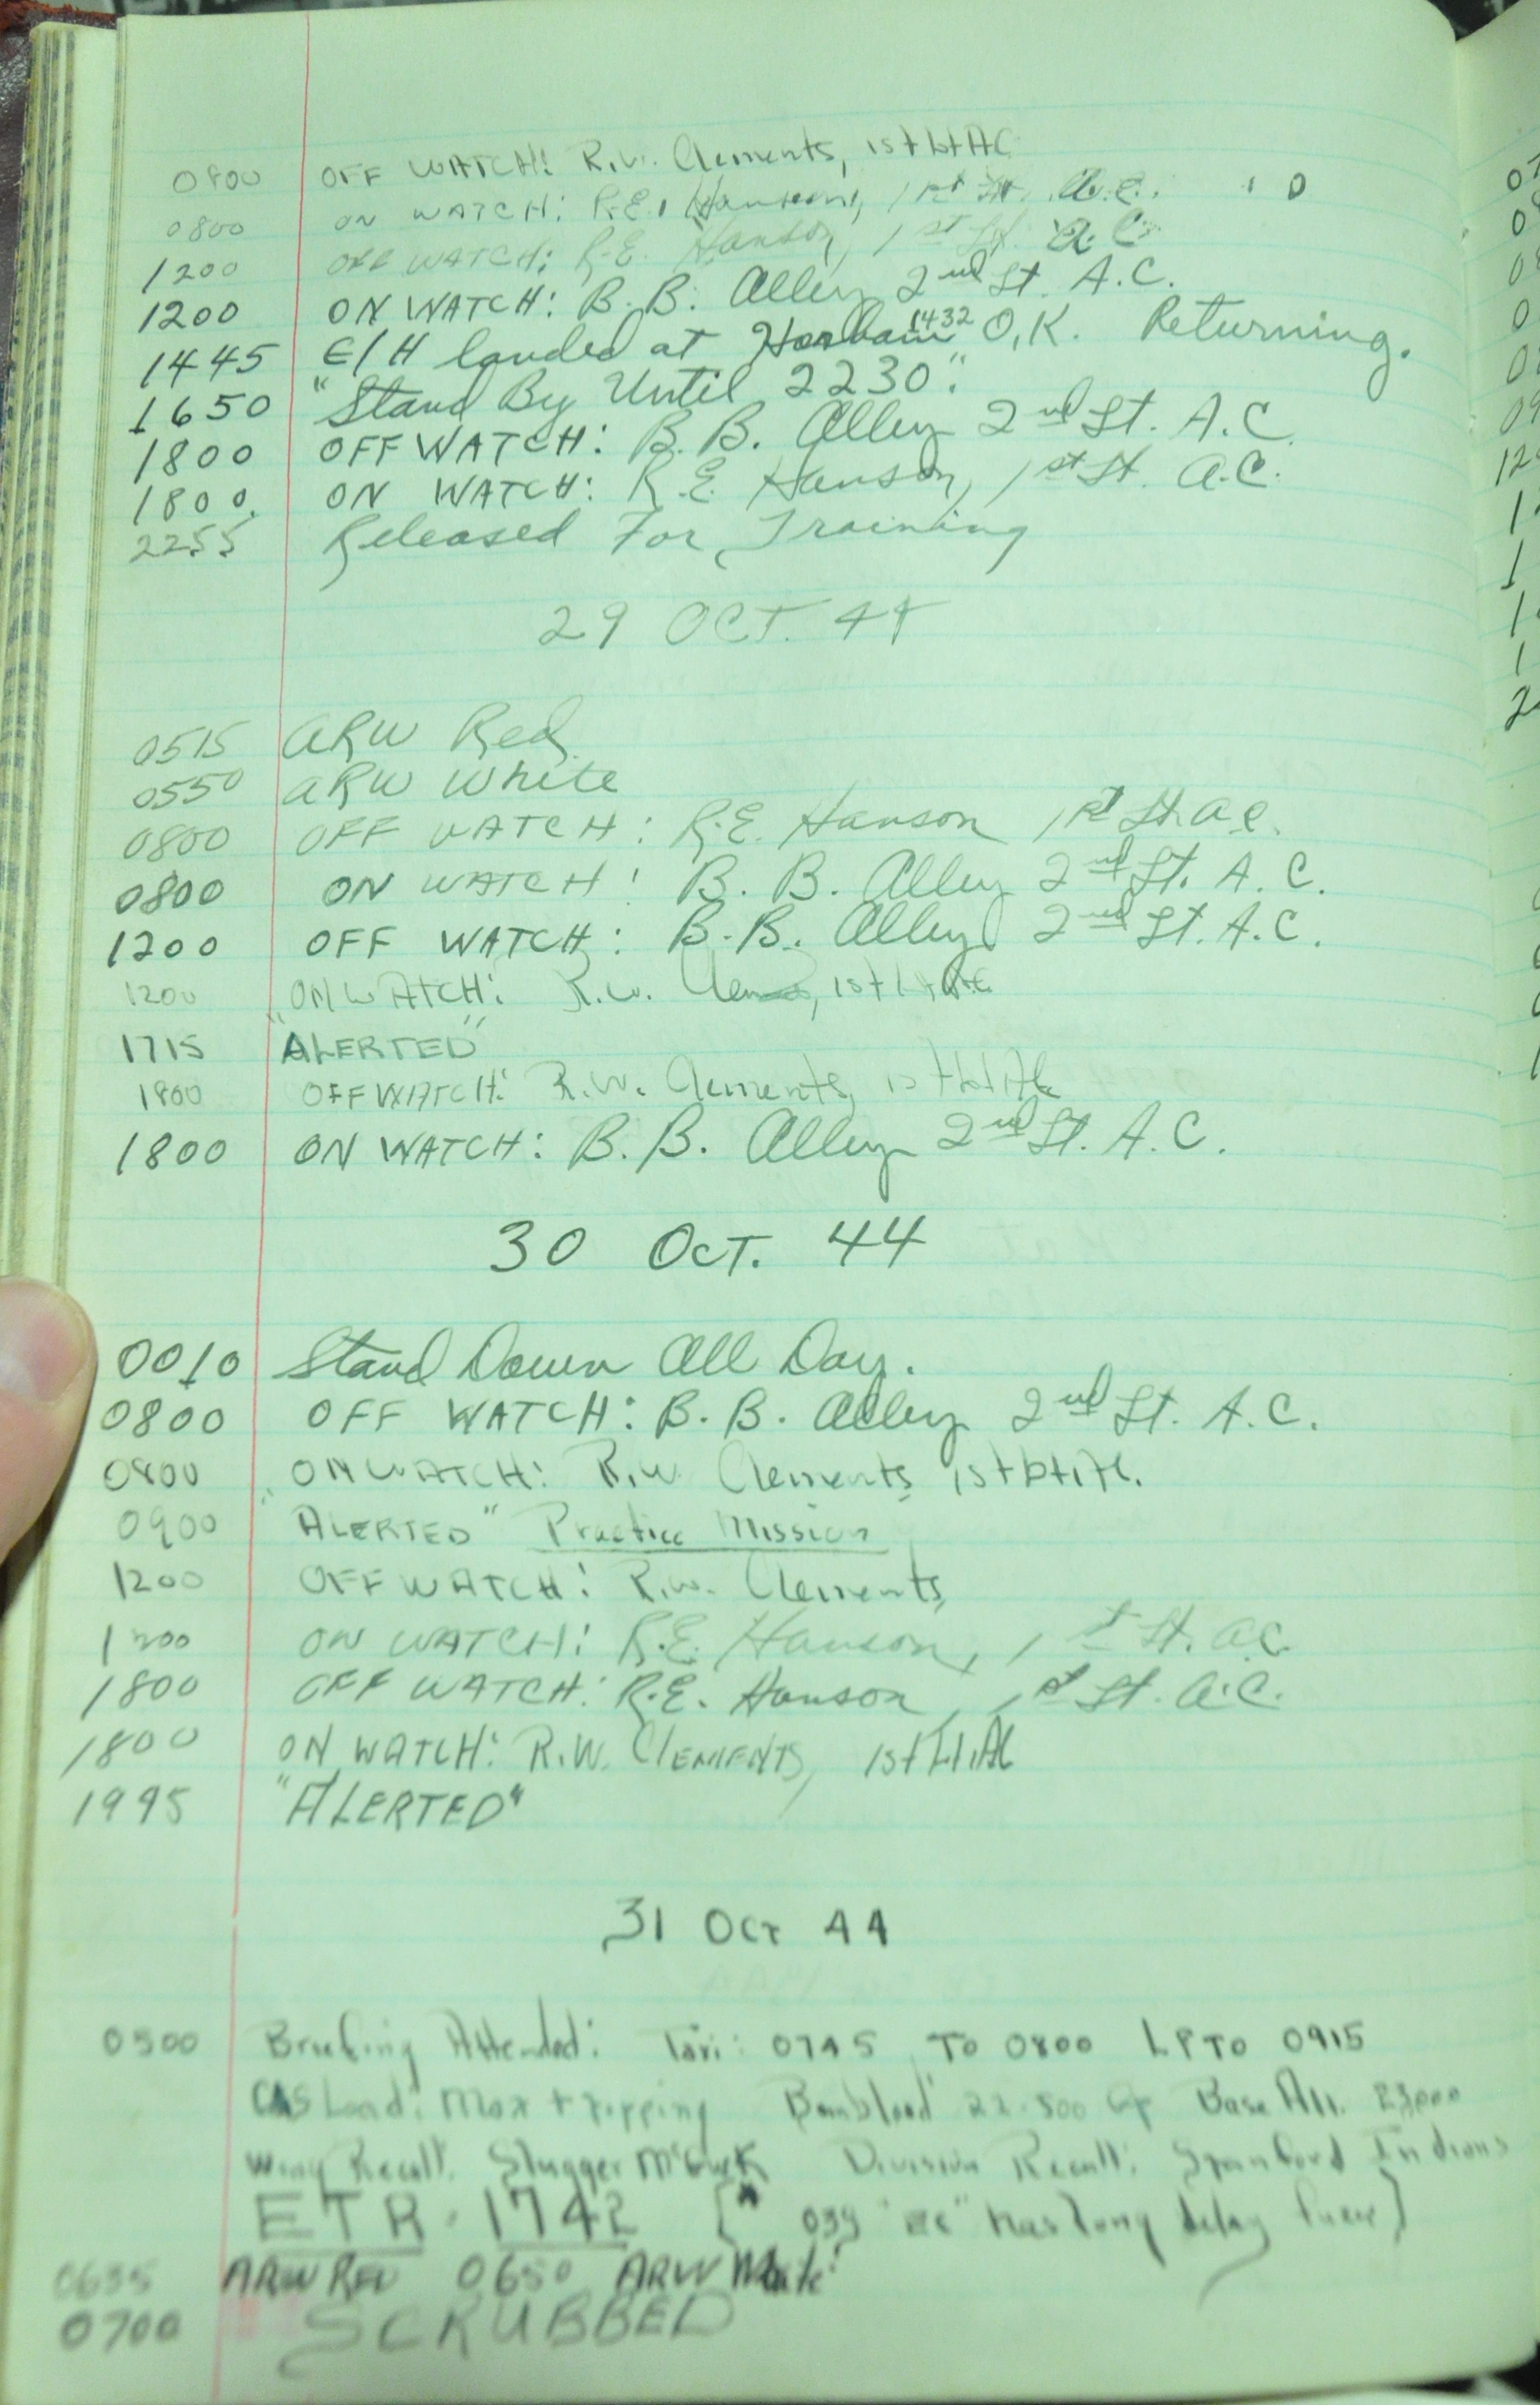 0800 OFF WATCH: R.W. Clements, 1st Lt AC
0800 ON WATCH: R.E. Hanson, 1st Lt. A.C.
1200 OFF WATCH: R.E. Hanson, 1st Lt. A.C.
1200 ON WATCH: B.B. Alley 2nd Lt. A.C.
1445 E/H landed at Horham 1432 O.K. Returning.
1650 "Stand By Until 2230".
1800 OFF WATCH: B.B. Alley 2nd Lt. A.C.
1800. ON WATCH: R.E. Hanson, 1st Lt. A.C.
2255 Released For Training
29 OCT. 44
0515 ARW Red
0550 ARW White
0800 OFF WATCH: R.E. Hanson 1st Lt. A.C.
0800 ON WATCH: B.B. Alley 2nd Lt. A.C.
1200 OFF WATCH: B.B. Alley 2nd Lt. A.C.
1200 ON WATCH: R.W. 1st Lt AC
1715 "ALERTED"
1800 OFF WATCH: R.W. Clements, 1st Lt AC
1800 ON WATCH: B.B. Alley 2nd Lt. A.C.
30 OCT. 44
0010 Stand Down All Day.
0800 OFF WATCH: B.B. Alley 2nd Lt. A.C.
0800 ON WATCH: R.W. Clements 1st Lt AC.
0900 "ALERTED" Practice Mission
1200 OFF WATCH: R.W. Clements,
1200 ON WATCH: R.E. Hanson, 1st Lt. A.C.
1800 OFF WATCH: R.E. Hanson, 1st Lt. A.C.
1800 ON WATCH: R.W. CLEMENTS, 1st Lt. AC
1945 "ALERTED"
31 OCT 44
0500 Briefing Attended: Taxi: 0745 TO 0800 LP TO 0915
Gas Load: Max + topping Bombload 22-500 Gp Base Alt. 23000
Wing Recall. Slugger Division Recall: Indians
ETR. 1742 [" 039 has long delay fuse]
0635 ARW Red 0650 ARW White
0700 SCRUBBED